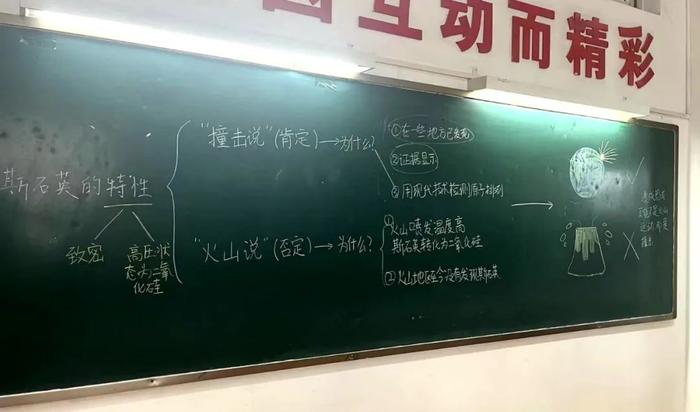 互动而精彩
斯石英的特性
致密
高压状
态为二氧
化硅
"撞击说"(肯定)→为什么?
①在一些地方已发现
②证据显示
③用现代技术检测原子排列
"火山说"(否定)→为什么?
①火山喷发温度高
斯石英转化为二氧化硅
②火山地区至今没有发现斯石英
撞击